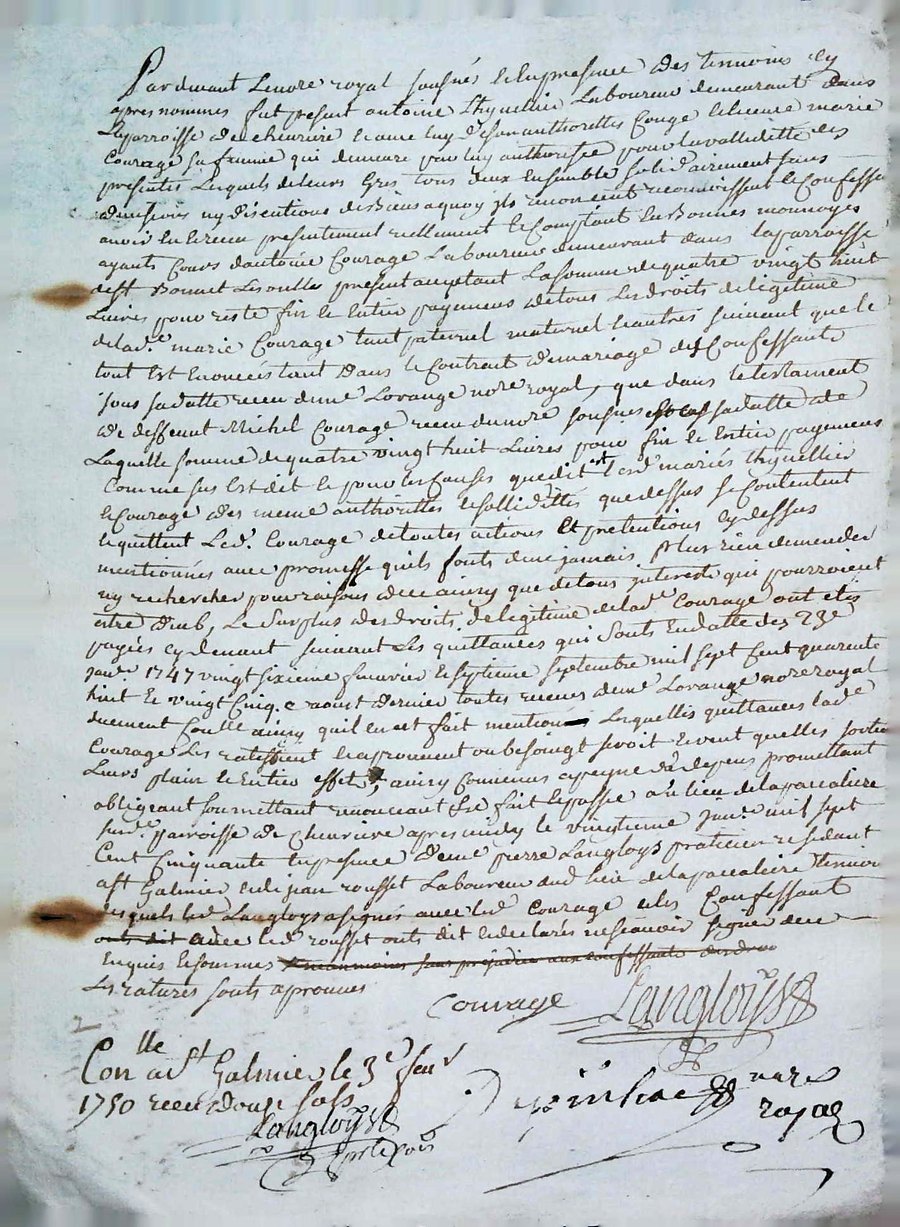 Pardevant Lenore royal sousignés et en presence des temoins cy
apres nommes fut present antoine thynellier Laboureur demeurant dans
La parroisse de chevrire et avec luy de son authorittes Conge et licence marie
Courage sa femme qui demeure pour luy authorisée pour la validitte des
presentes Lesquels de leurs Gres tous deux Ensemble solidairement sans
division ny discutions de Biens a quoy ils renoncent reconnoissent et Confessent
avoir Eu et receu presentement reellement et Comptant En Bonnes monnoyes
ayants Cours dantoine Courage Laboureur demeurant dans la parroisse
de st Bonnet Les oulles present acceptant La somme de quatre vingt huit
Livres pour reste fin et Entier payement de tous Les droits de legitime
de lad.e marie Courage tant paternel maternel et autres suivant que le
tout Est Enoncés tant dans le Contrait de mariage des Confessants
sous sa datte receu de me Lorange nore royal, que dans le testament
de deffeunt Michel Courage receu du nore sousignes sa datte
Laquelle somme de quatre vingt huit Livres pour fin et Entier payement
Comme sus Est dit et pour les Causes que dit est Lesd mariés thynellier
et Courage des meme authorittes et sollidittes que dessus se Contentent
et quittent Led. Courage de toutes actions Et pretentions cy dessus
mentionnés avec promesse quils fonts de ne jamais plus rien demender
ny rechercher pour raisons de ce ainsy que de tous interests qui pourroient
estre dheub, Le surplus des droits de legitime de lad.e Courage ont etés
payées cy devant suivant Les quittances qui sonts En datte des 23e
janv.e 1747 vingt sixieme fevrier et septieme septembre mil sept Cent quarente
huit et vingt Cinq.e aoust dernier toutes receues de me Lorange nore royal
duement Conlle ainsy quil en est fait mention Lesquelles quittances lad.e
Courage Les ratiffient et aprouvent ou besoingt seroit et veut quelles sortent
Leurs plain et Entier effet, ainsy Convenus a peyne de depens promettant
obligeant soumettant renonceant Et fait et passé a lieu de la pacaliere
susd.e parroisse de Chevrire apres midy le vingtieme janv.e mil sept
Cent Cinquante En presence de me pierre Langloys praticien residant
a st Galmier et de jean rousset Laboureur aud lieu de la pacaliere temoins
Lesquels led Langloys a signés avec led Courage et les Confessant
avec led rousset onts dit et declarés ne scavoir signer de ce
Enquis et sommes
Les ratures sonts aprouves
Courage Langloys
Conlle a st Galmier le 3e fevr
1750 receu douze sols
Langloys
nore
royal